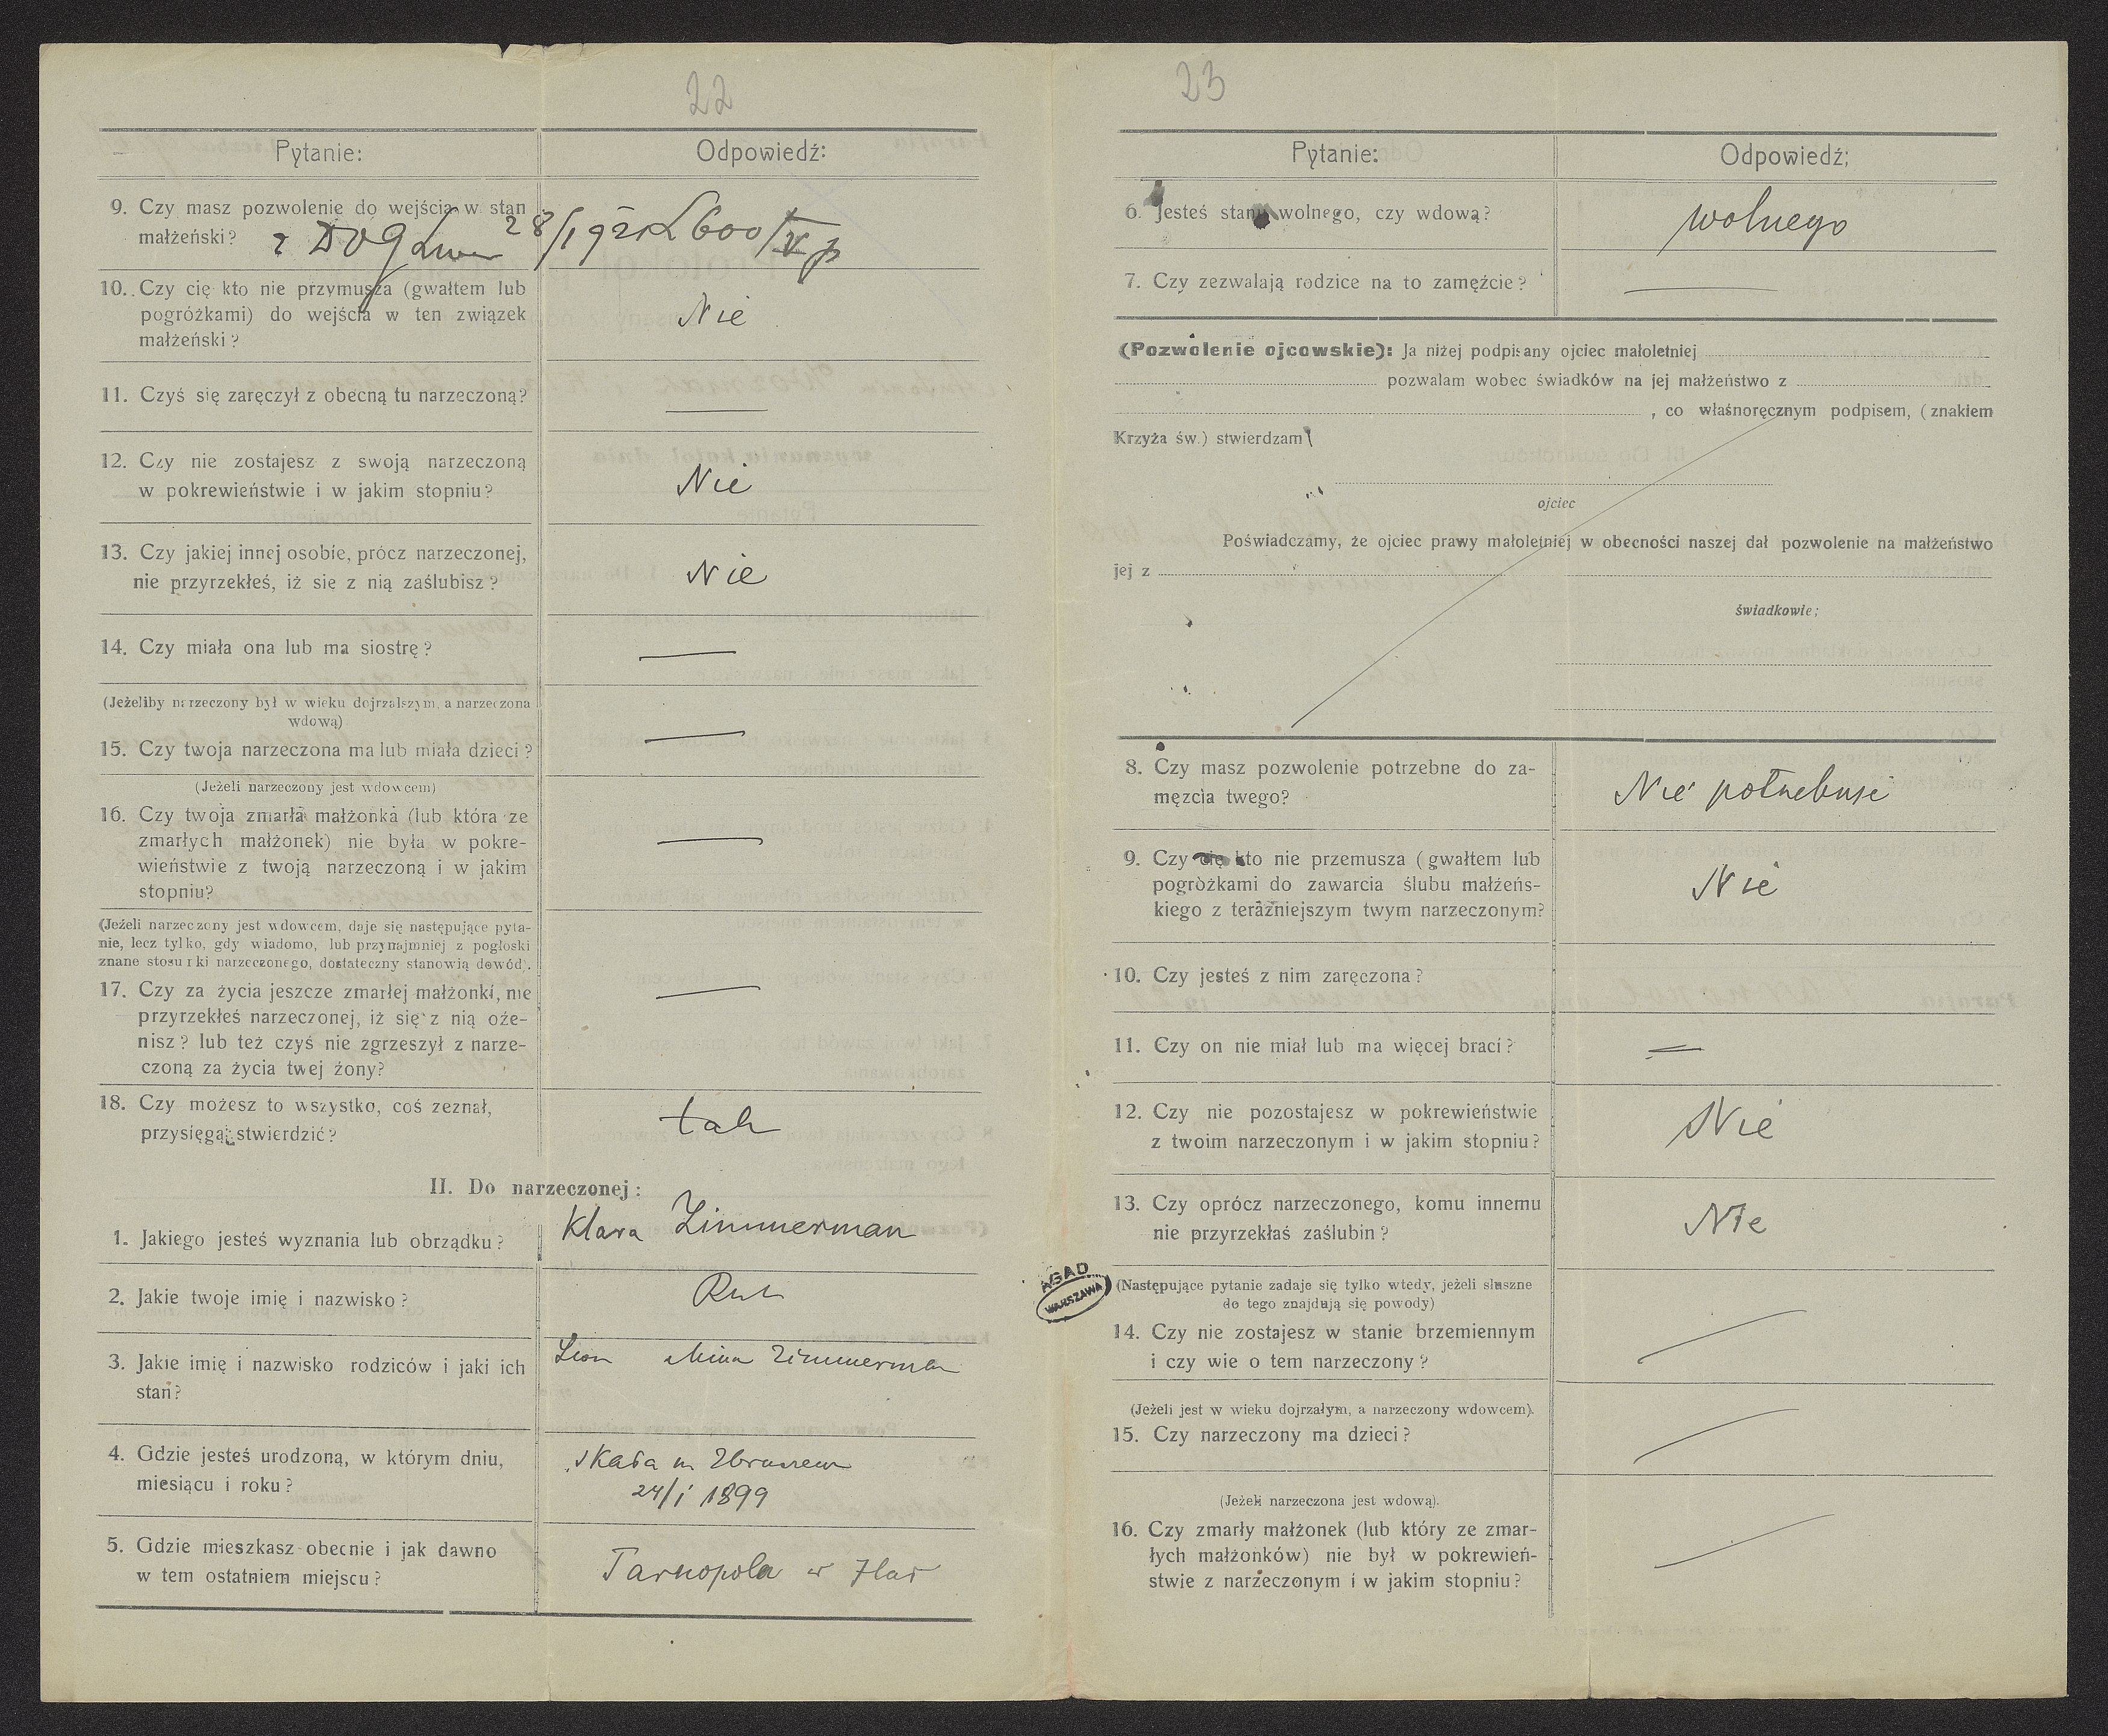 22
Pytanie:
Odpowiedź:
9. Czy masz pozwolenie do wejścia w stan
małżeński?
z DOG Lwów 28/I 921 L 600/V p
10. Czy cię kto nie przymusza (gwałtem lub
pogróżkami) do wejścia w ten związek
małżeński?
Nie
11. Czyś się zaręczył z obecną tu narzeczoną?
—
12. Czy nie zostajesz z swoją narzeczoną
w pokrewieństwie i w jakim stopniu?
Nie
13. Czy jakiej innej osobie, prócz narzeczonej,
nie przyrzekłeś, iż się z nią zaślubisz?
Nie
14. Czy miała ona lub ma siostrę?
—
(Jeżeliby narzeczony był w wieku dojrzalszym, a narzeczona
wdową)
15. Czy twoja narzeczona ma lub miała dzieci?
—
(Jeżeli narzeczony jest wdowcem)
16. Czy twoja zmarła małżonka (lub która ze
zmarłych małżonek) nie była w pokre-
wieństwie z twoją narzeczoną i w jakim
stopniu?
—
(Jeżeli narzeczony jest wdowcem, daje się następujące pyta-
nie, lecz tylko, gdy wiadomo, lub przynajmniej z pogłoski
znane stosunki narzeczonego, dostateczny stanowią dowód).
17. Czy za życia jeszcze zmarłej małżonki, nie
przyrzekłeś narzeczonej, iż się z nią oże-
nisz? lub też czyś nie zgrzeszył z narze-
czoną za życia twej żony?
—
18. Czy możesz to wszystko, coś zeznał,
przysięgą stwierdzić?
tak
II. Do narzeczonej:
1. Jakiego jesteś wyznania lub obrządku?
Klara Zimmerman
2. Jakie twoje imię i nazwisko?
3. Jakie imię i nazwisko rodziców i jaki ich
stan?
Leon Mina Zimmerman
4. Gdzie jesteś urodzoną, w którym dniu,
miesiącu i roku?
Skała n Zbruczem
24/I 1899
5. Gdzie mieszkasz obecnie i jak dawno
w tem ostatniem miejscu?
Tarnopola
23
Pytanie:
Odpowiedź;
6. Jesteś stanu wolnego, czy wdową?
wolnego
7. Czy zezwalają rodzice na to zamęźcie?
—
(Pozwolenie ojcowskie): Ja niżej podpisany ojciec małoletniej
pozwalam wobec świadków na jej małżeństwo z
, co własnoręcznym podpisem, (znakiem
Krzyża św.) stwierdzam
ojciec
Poświadczamy, że ojciec prawy małoletniej w obecności naszej dał pozwolenie na małżeństwo
jej z
świadkowie;
8. Czy masz pozwolenie potrzebne do za-
męzcia twego?
Nie potrzebuje
9. Czy cię kto nie przemusza (gwałtem lub
pogróżkami do zawarcia ślubu małżeńs-
kiego z teraźniejszym twym narzeczonym?
Nie
10. Czy jesteś z nim zaręczona?
11. Czy on nie miał lub ma więcej braci?
—
12. Czy nie pozostajesz w pokrewieństwie
z twoim narzeczonym i w jakim stopniu?
Nie
13. Czy oprócz narzeczonego, komu innemu
nie przyrzekłaś zaślubin?
Nie
AGAD
WARSZAWA
(Następujące pytanie zadaje się tylko wtedy, jeżeli słuszne
do tego znajdują się powody)
14. Czy nie zostajesz w stanie brzemiennym
i czy wie o tem narzeczony?
(Jeżeli jest w wieku dojrzałym, a narzeczony wdowcem).
15. Czy narzeczony ma dzieci?
(Jeżeli narzeczona jest wdową).
16. Czy zmarły małżonek (lub który ze zmar-
łych małżonków) nie był w pokrewień-
stwie z narzeczonym i w jakim stopniu?